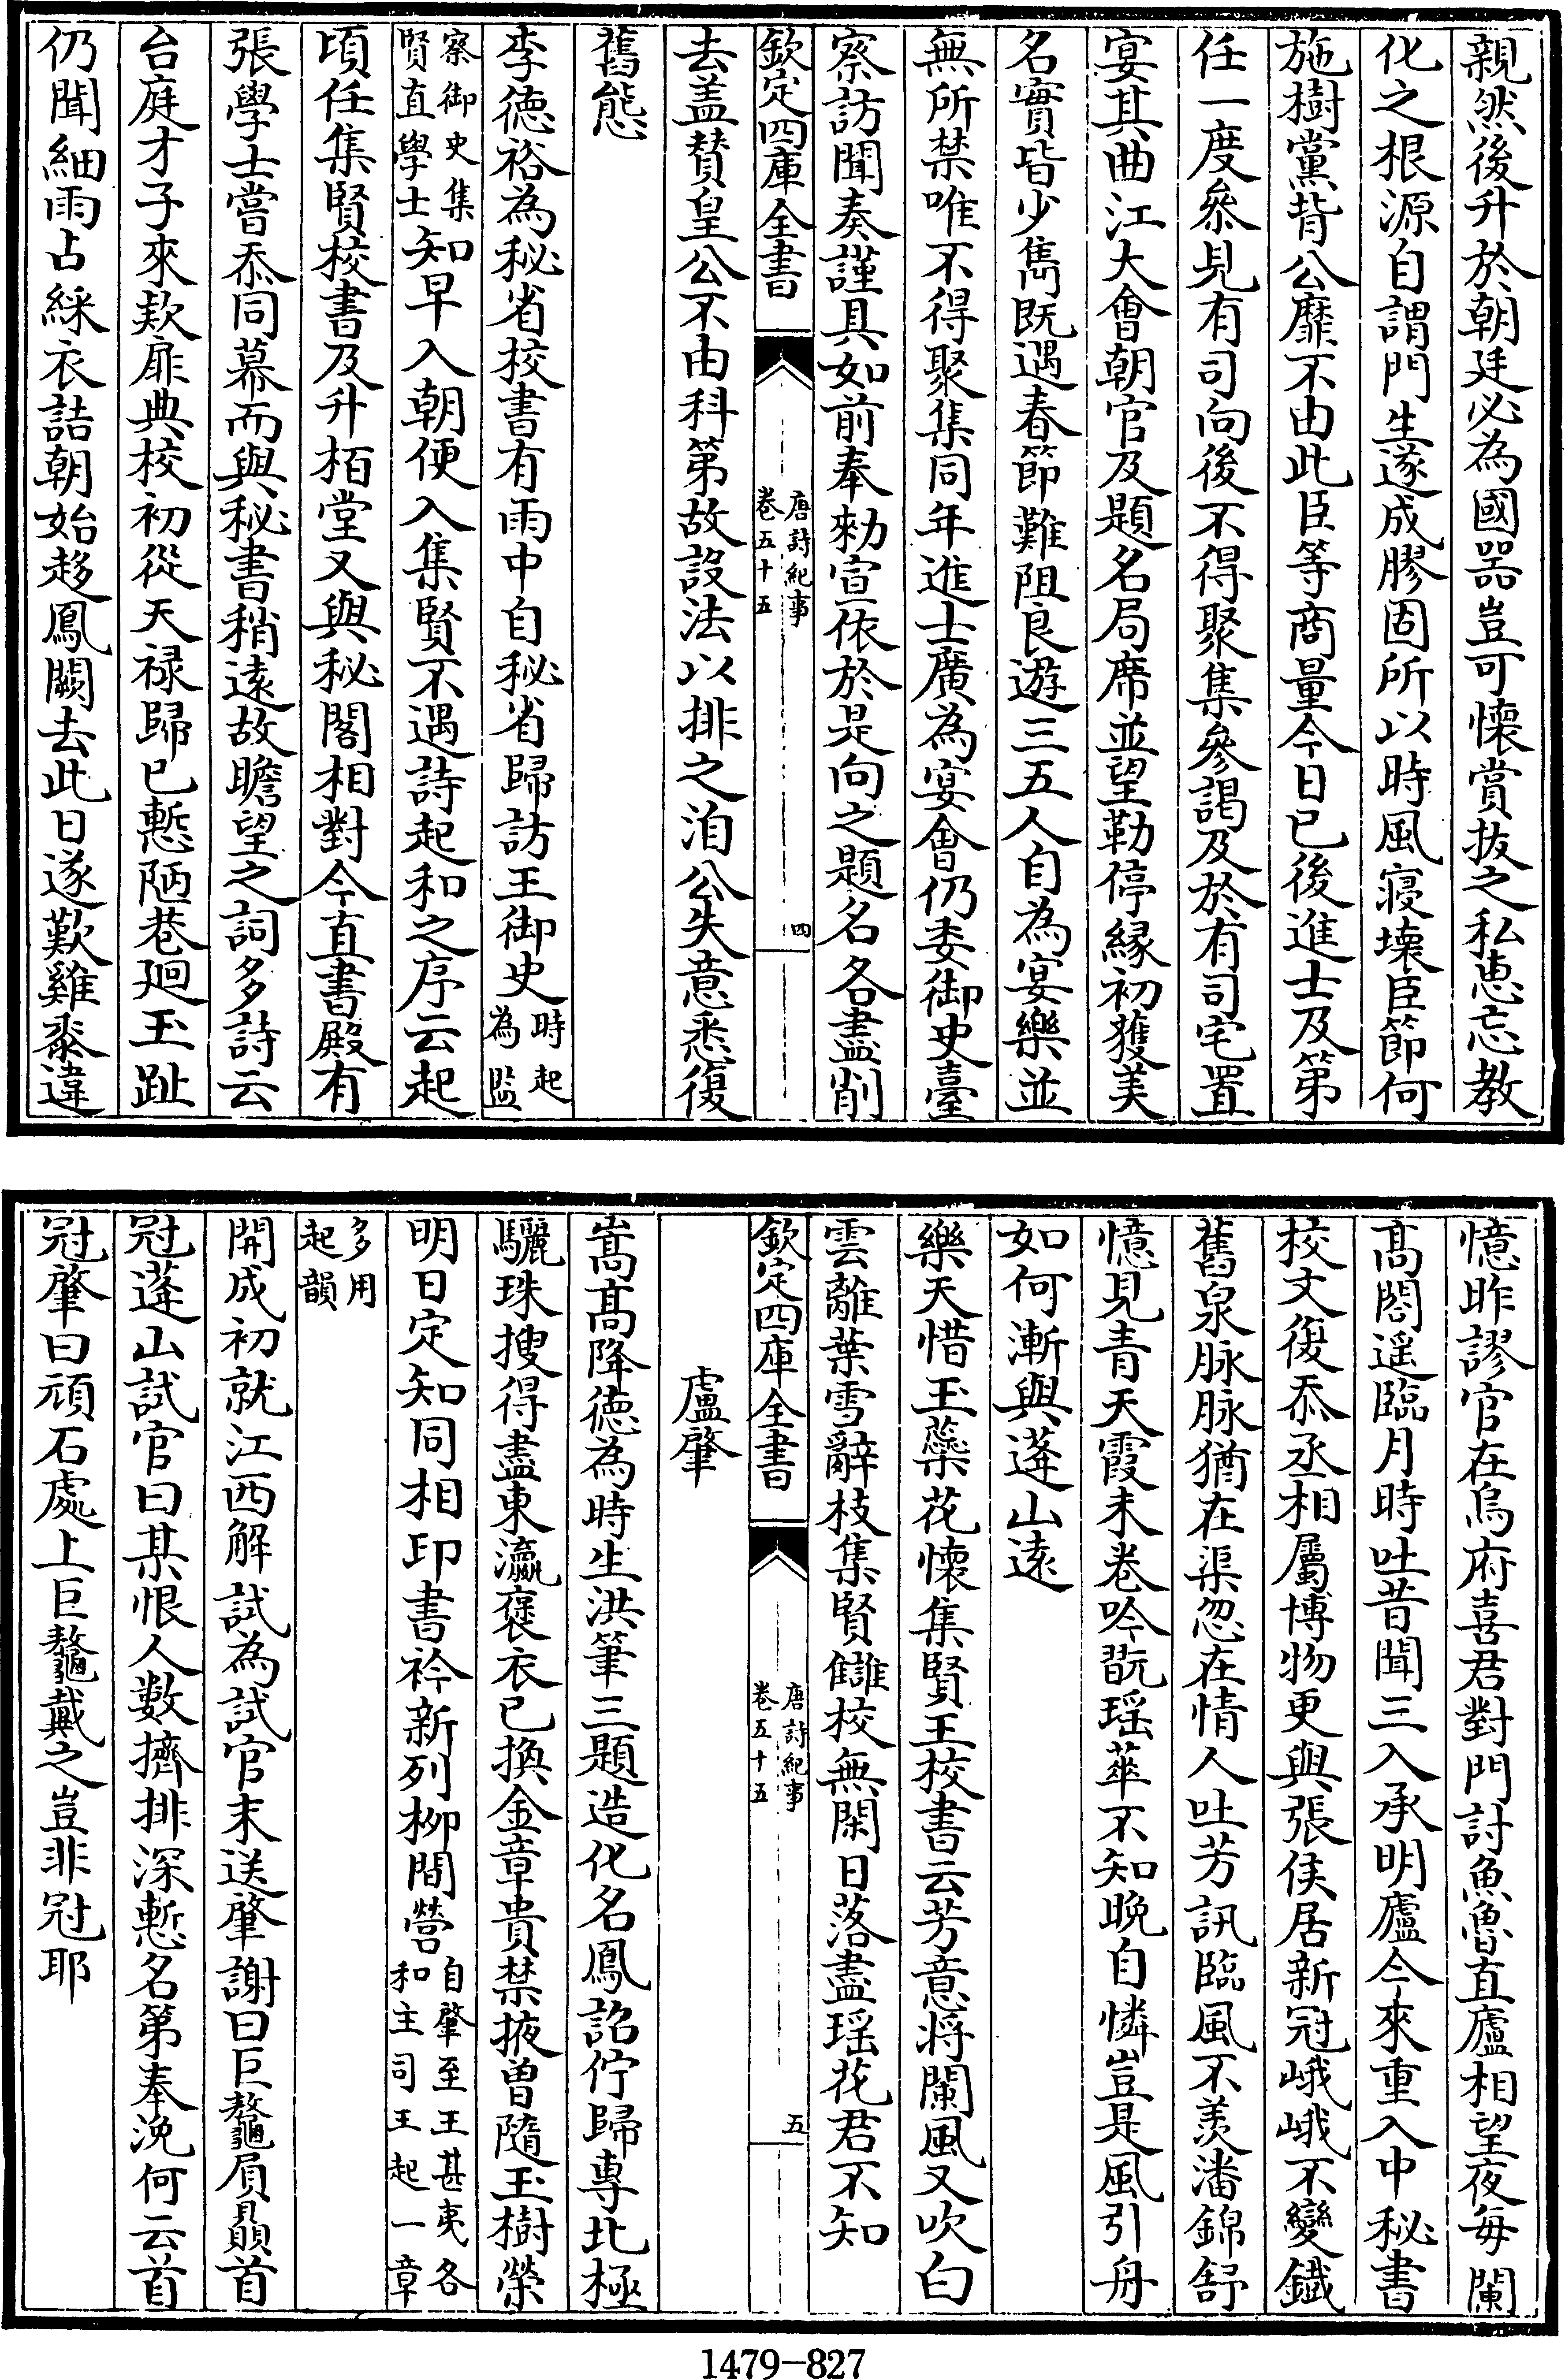 親然後升於朝廷必為國器豈可懷賞拔之私惠忘教
化之根源自謂門生遂成膠固所以時風寖壞臣節何
施樹黨背公靡不由此臣等商量今日已後進士及第
任一度叅見有司向後不得聚集參謁及於有司宅置
宴其曲江大會朝官及題名局席並望勒停緣初獲美
名實皆少雋既遇春節難阻良遊三五人自為宴樂並
無所禁唯不得聚集同年進士廣為宴會仍委御史臺
察訪聞奏謹具如前奉勑宣依於是向之題名各盡削
欽定四庫全書
唐詩紀事
卷五十五
四
去盖賛皇公不由科第故設法以排之洎公失意悉復
舊態
李德裕為秘省校書有雨中自秘省歸訪王御史時起為監
察御史集賢直學士知早入朝便入集賢不遇詩起和之序云起
頃任集賢校書及升栢堂又與秘閣相對今直書殿有
張學士嘗忝同幕而與秘書稍遠故瞻望之詞多詩云
台庭才子來欵扉典校初從天禄歸已慙陋巷廻玉趾
仍聞細雨占綵衣詰朝始趍鳳闕去此日遂歎雞黍違
憶昨謬官在烏府喜君對門討魚魯直廬相望夜每闌
髙閣遥臨月時吐昔聞三入承明廬今來重入中秘書
校文復忝丞相屬博物更與張侯居新冠峨峨不變鐵
舊泉脉脉猶在渠忽在情人吐芳訊臨風不羨潘錦舒
憶見青天霞未卷吟翫瑶華不知晚自憐豈是風引舟
如何漸與蓬山遠
樂天惜玉蘂花懷集賢王校書云芳意將闌風又吹白
雲離葉雪辭枝集賢讎校無閑日落盡瑶花君不知
欽定四庫全書
唐詩紀事
卷五十五
五
盧肇
嵩髙降德為時生洪筆三題造化名鳳詔佇歸專北極
驪珠搜得盡東瀛褒衣已換金章貴禁掖曽隨玉樹榮
明日定知同相印書衿新列柳間營自肇至王甚夷各和主司王起一章
多用起韻
開成初就江西解試為試官末送肇謝曰巨鼇屓贔首
冠蓬山試官曰某恨人數擠排深慙名第奉浼何云首
冠肇曰頑石處上巨鼇戴之豈非冠耶
1479-827